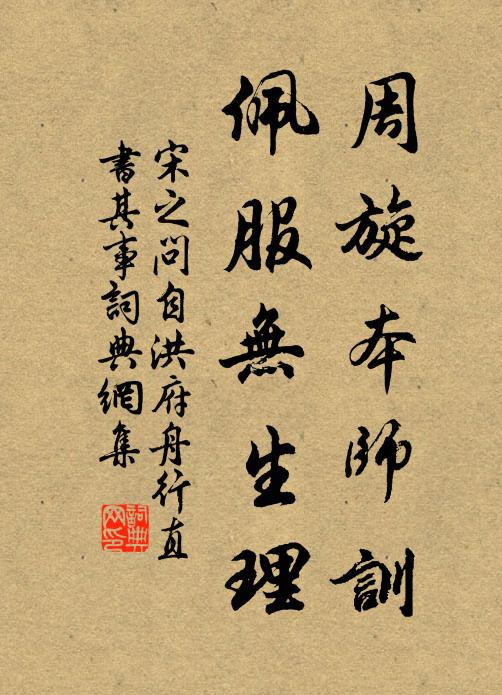 周旋本師訓
佩服無生理
宋之問自洪府舟行直
書其事詞典網集
詞典网印